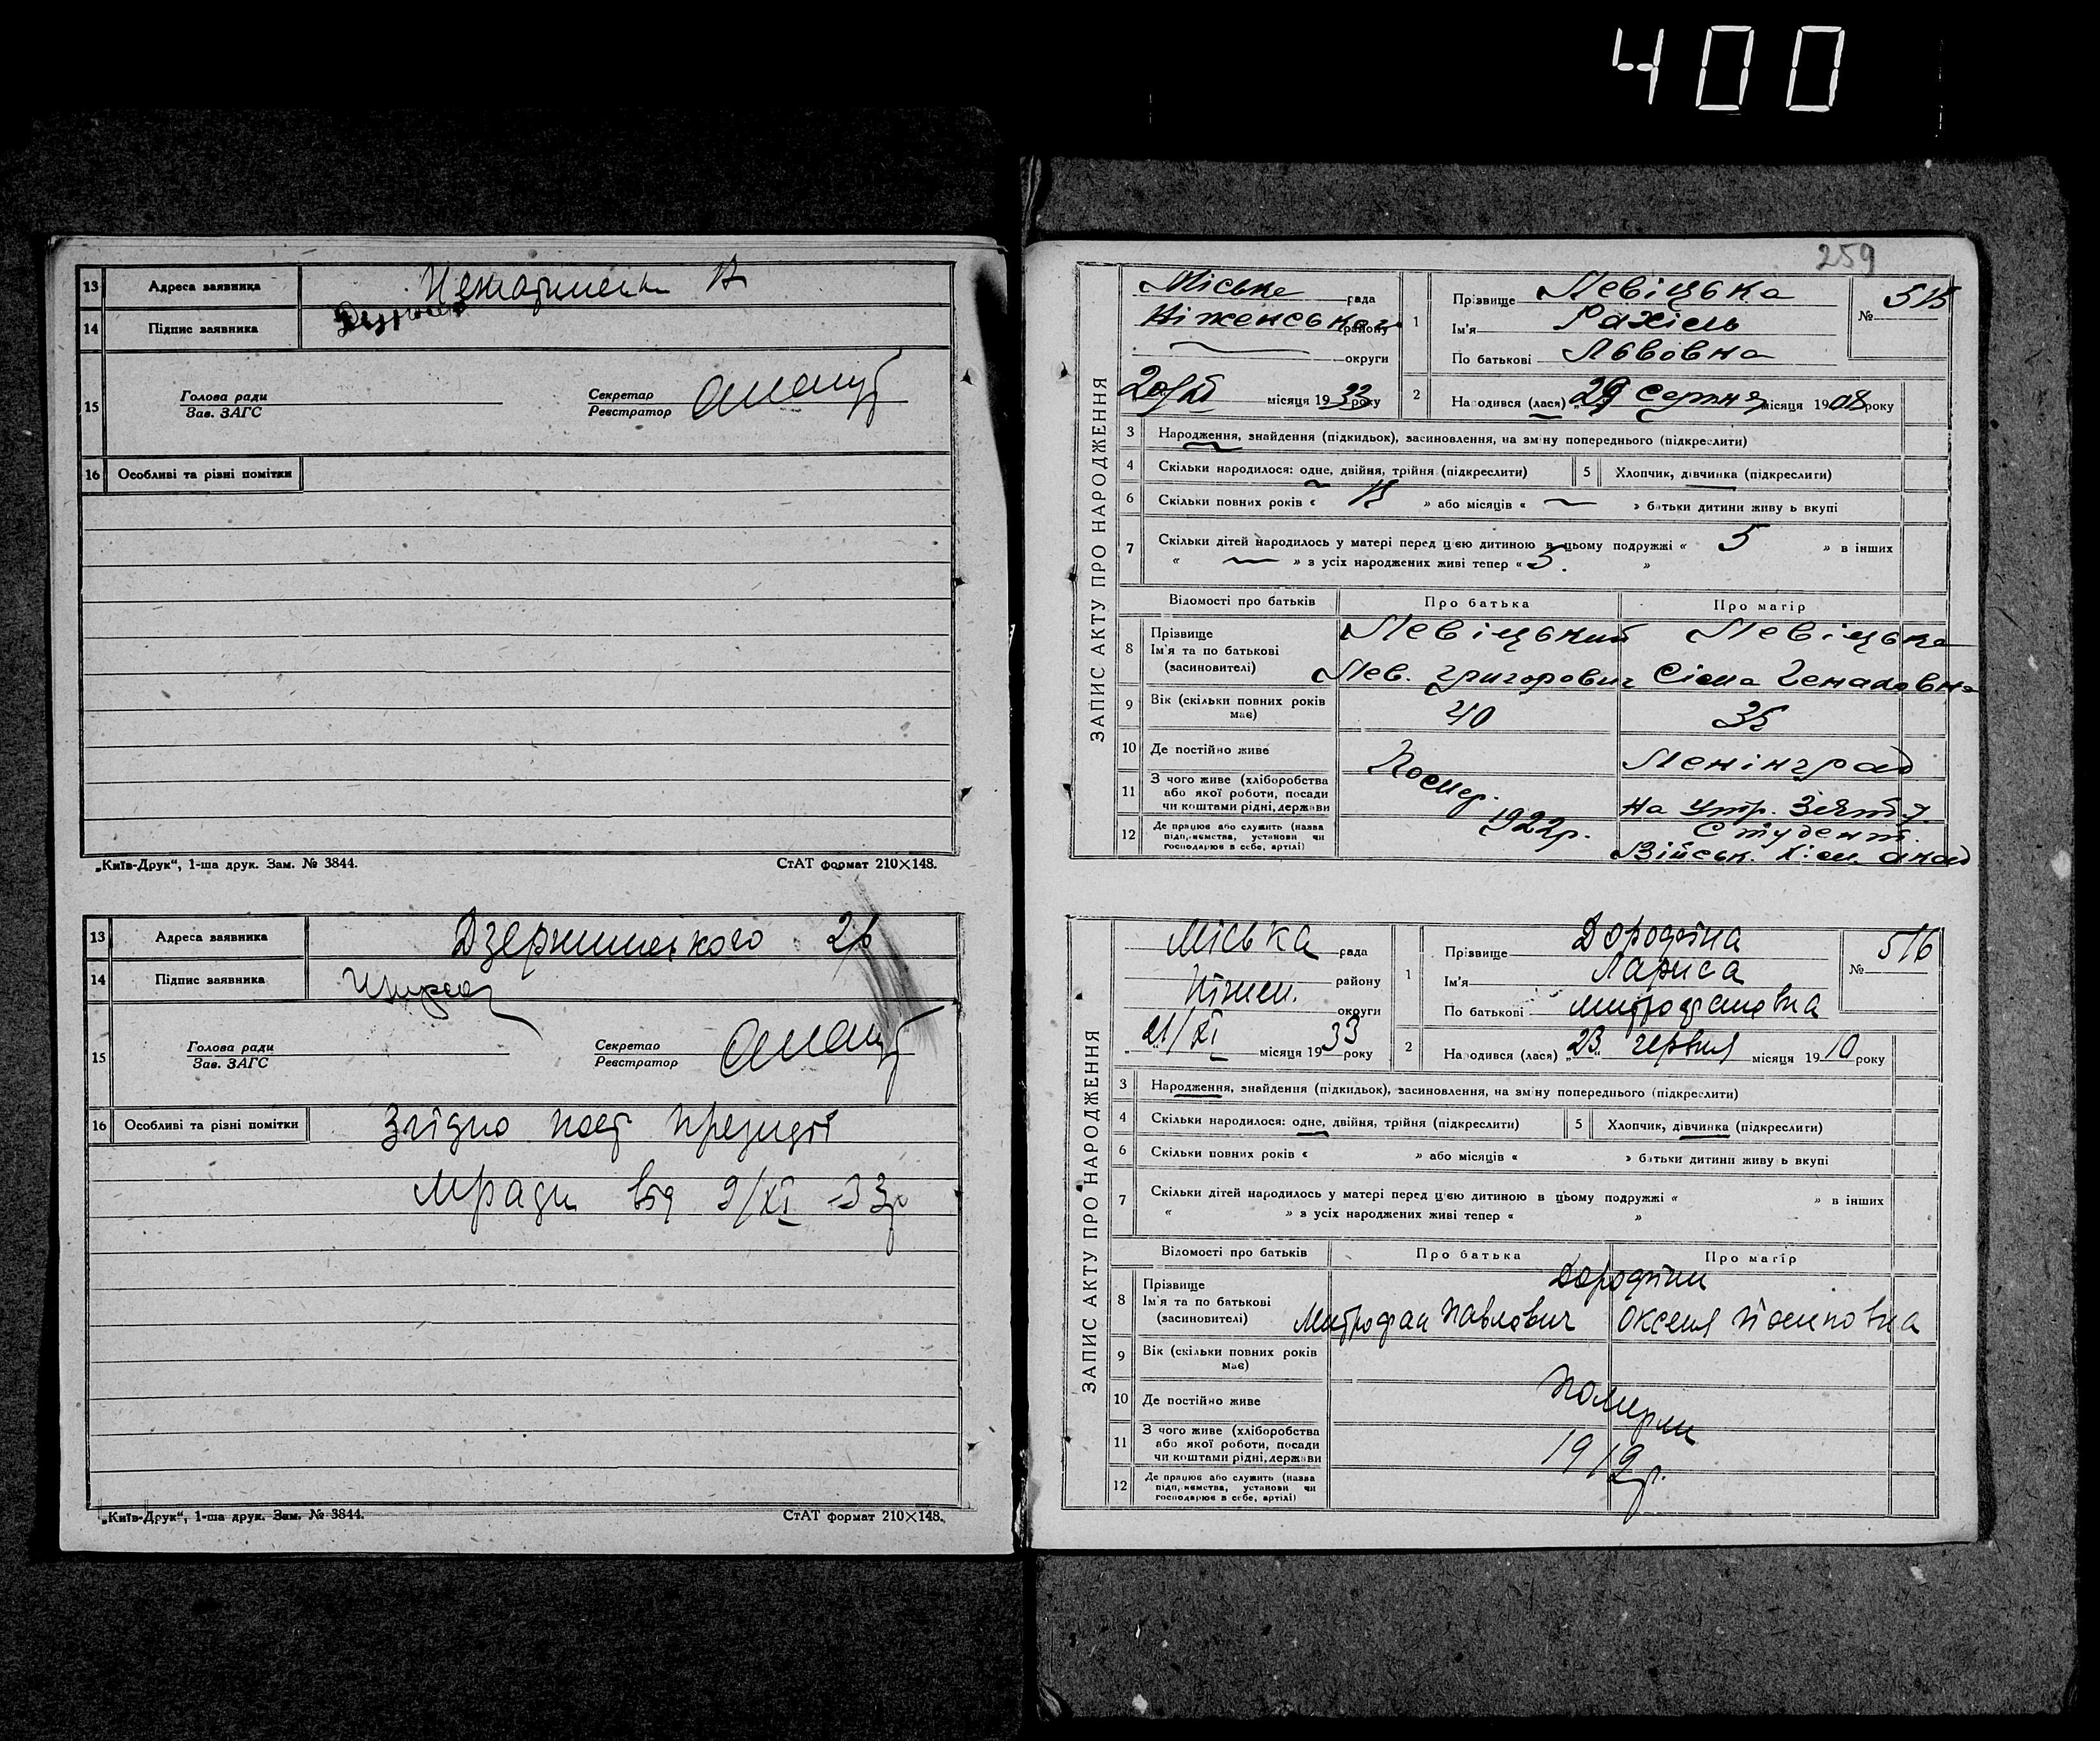 400
13 Адреса заявника
14 Підпис заявника
15 Голова ради
Зав. ЗАГС
Секретар
Реєстратор
16 Особливі та різні помітки
„Київ-Друк“, 1-ша друк. Зам. № 3844. СтАТ формат 210×148.
13 Адреса заявника Дзержинського 26
14 Підпис заявника
15 Голова ради
Зав. ЗАГС
Секретар
Реєстратор
16 Особливі та різні помітки Згідно пост президії
мради від 9/XI -33р
„Київ-Друк“, 1-ша друк. Зам. № 3844. СтАТ формат 210×148.
259
ЗАПИС АКТУ ПРО НАРОДЖЕННЯ
Міська рада
Ніженського району
округи
20/XI місяця 1933 року
1 Прізвище Левіцька
Ім'я Рахіль
По батькові Львовна
№ 515
2 Народився (лася) „29 Серпня місяця 1908 року
3 Народження, знайдення (підкидьок), засиновлення, на зміну попереднього (підкреслити)
4 Скільки народилося: одне, двійня, трійня (підкреслити) 5 Хлопчик, дівчинка (підкреслити)
6 Скільки повних років « » або місяців « » батьки дитини живуть вкупі
7 Скільки дітей народилось у матері перед цією дитиною в цьому подружжі « 5 » в інших
« » з усіх народжених живі тепер « 5. »
Відомості про батьків Про батька Про матір
8 Прізвище
Ім'я та по батькові
(засиновителі)
Левіцький Левіцька
Лев. Григорович Сіма
9 Вік (скільки повних років має) 40 35
10 Де постійно живе Ленінград
11 З чого живе (хліборобства або якої роботи, посади чи коштами рідні, держави
Помер. 1922р.
На утр. Зятя
12 Де працює або служить (назва підприємства, установи чи господарює в себе, артілі)
Студент.
Військ. Хім. акад
ЗАПИС АКТУ ПРО НАРОДЖЕННЯ
Міська рада
Ніжен. району
округи
21/XI місяця 1933 року
1 Прізвище Дорофіна
Ім'я Лариса
По батькові Митрофановна
№ 516
2 Народився (лася) „23 червня місяця 1910 року
3 Народження, знайдення (підкидьок), засиновлення, на зміну попереднього (підкреслити)
4 Скільки народилося: одне, двійня, трійня (підкреслити) 5 Хлопчик, дівчинка (підкреслити)
6 Скільки повних років « » або місяців « » батьки дитини живуть вкупі
7 Скільки дітей народилось у матері перед цією дитиною в цьому подружжі « » в інших
« » з усіх народжених живі тепер « »
Відомості про батьків Про батька Про матір
8 Прізвище
Ім'я та по батькові
(засиновителі)
Дорофіни
Митрофан Павлович Оксеня
9 Вік (скільки повних років має)
10 Де постійно живе
11 З чого живе (хліборобства або якої роботи, посади чи коштами рідні, держави
12 Де працює або служить (назва підприємства, установи чи господарює в себе, артілі)
Померли
1919р.